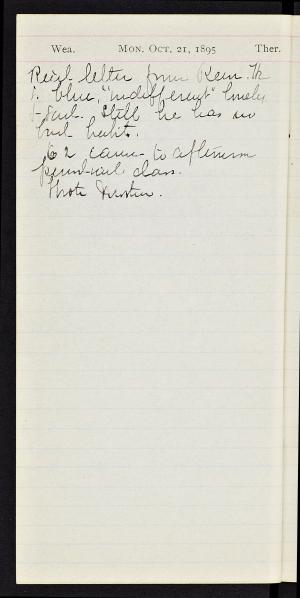 Wea. MON. OCT. 21, 1895 Ther.
Recd. letter from
blue, "indifferent" lonely
& sad. Still he has no
bad habits.
62 came to afternoon
class.
Wrote